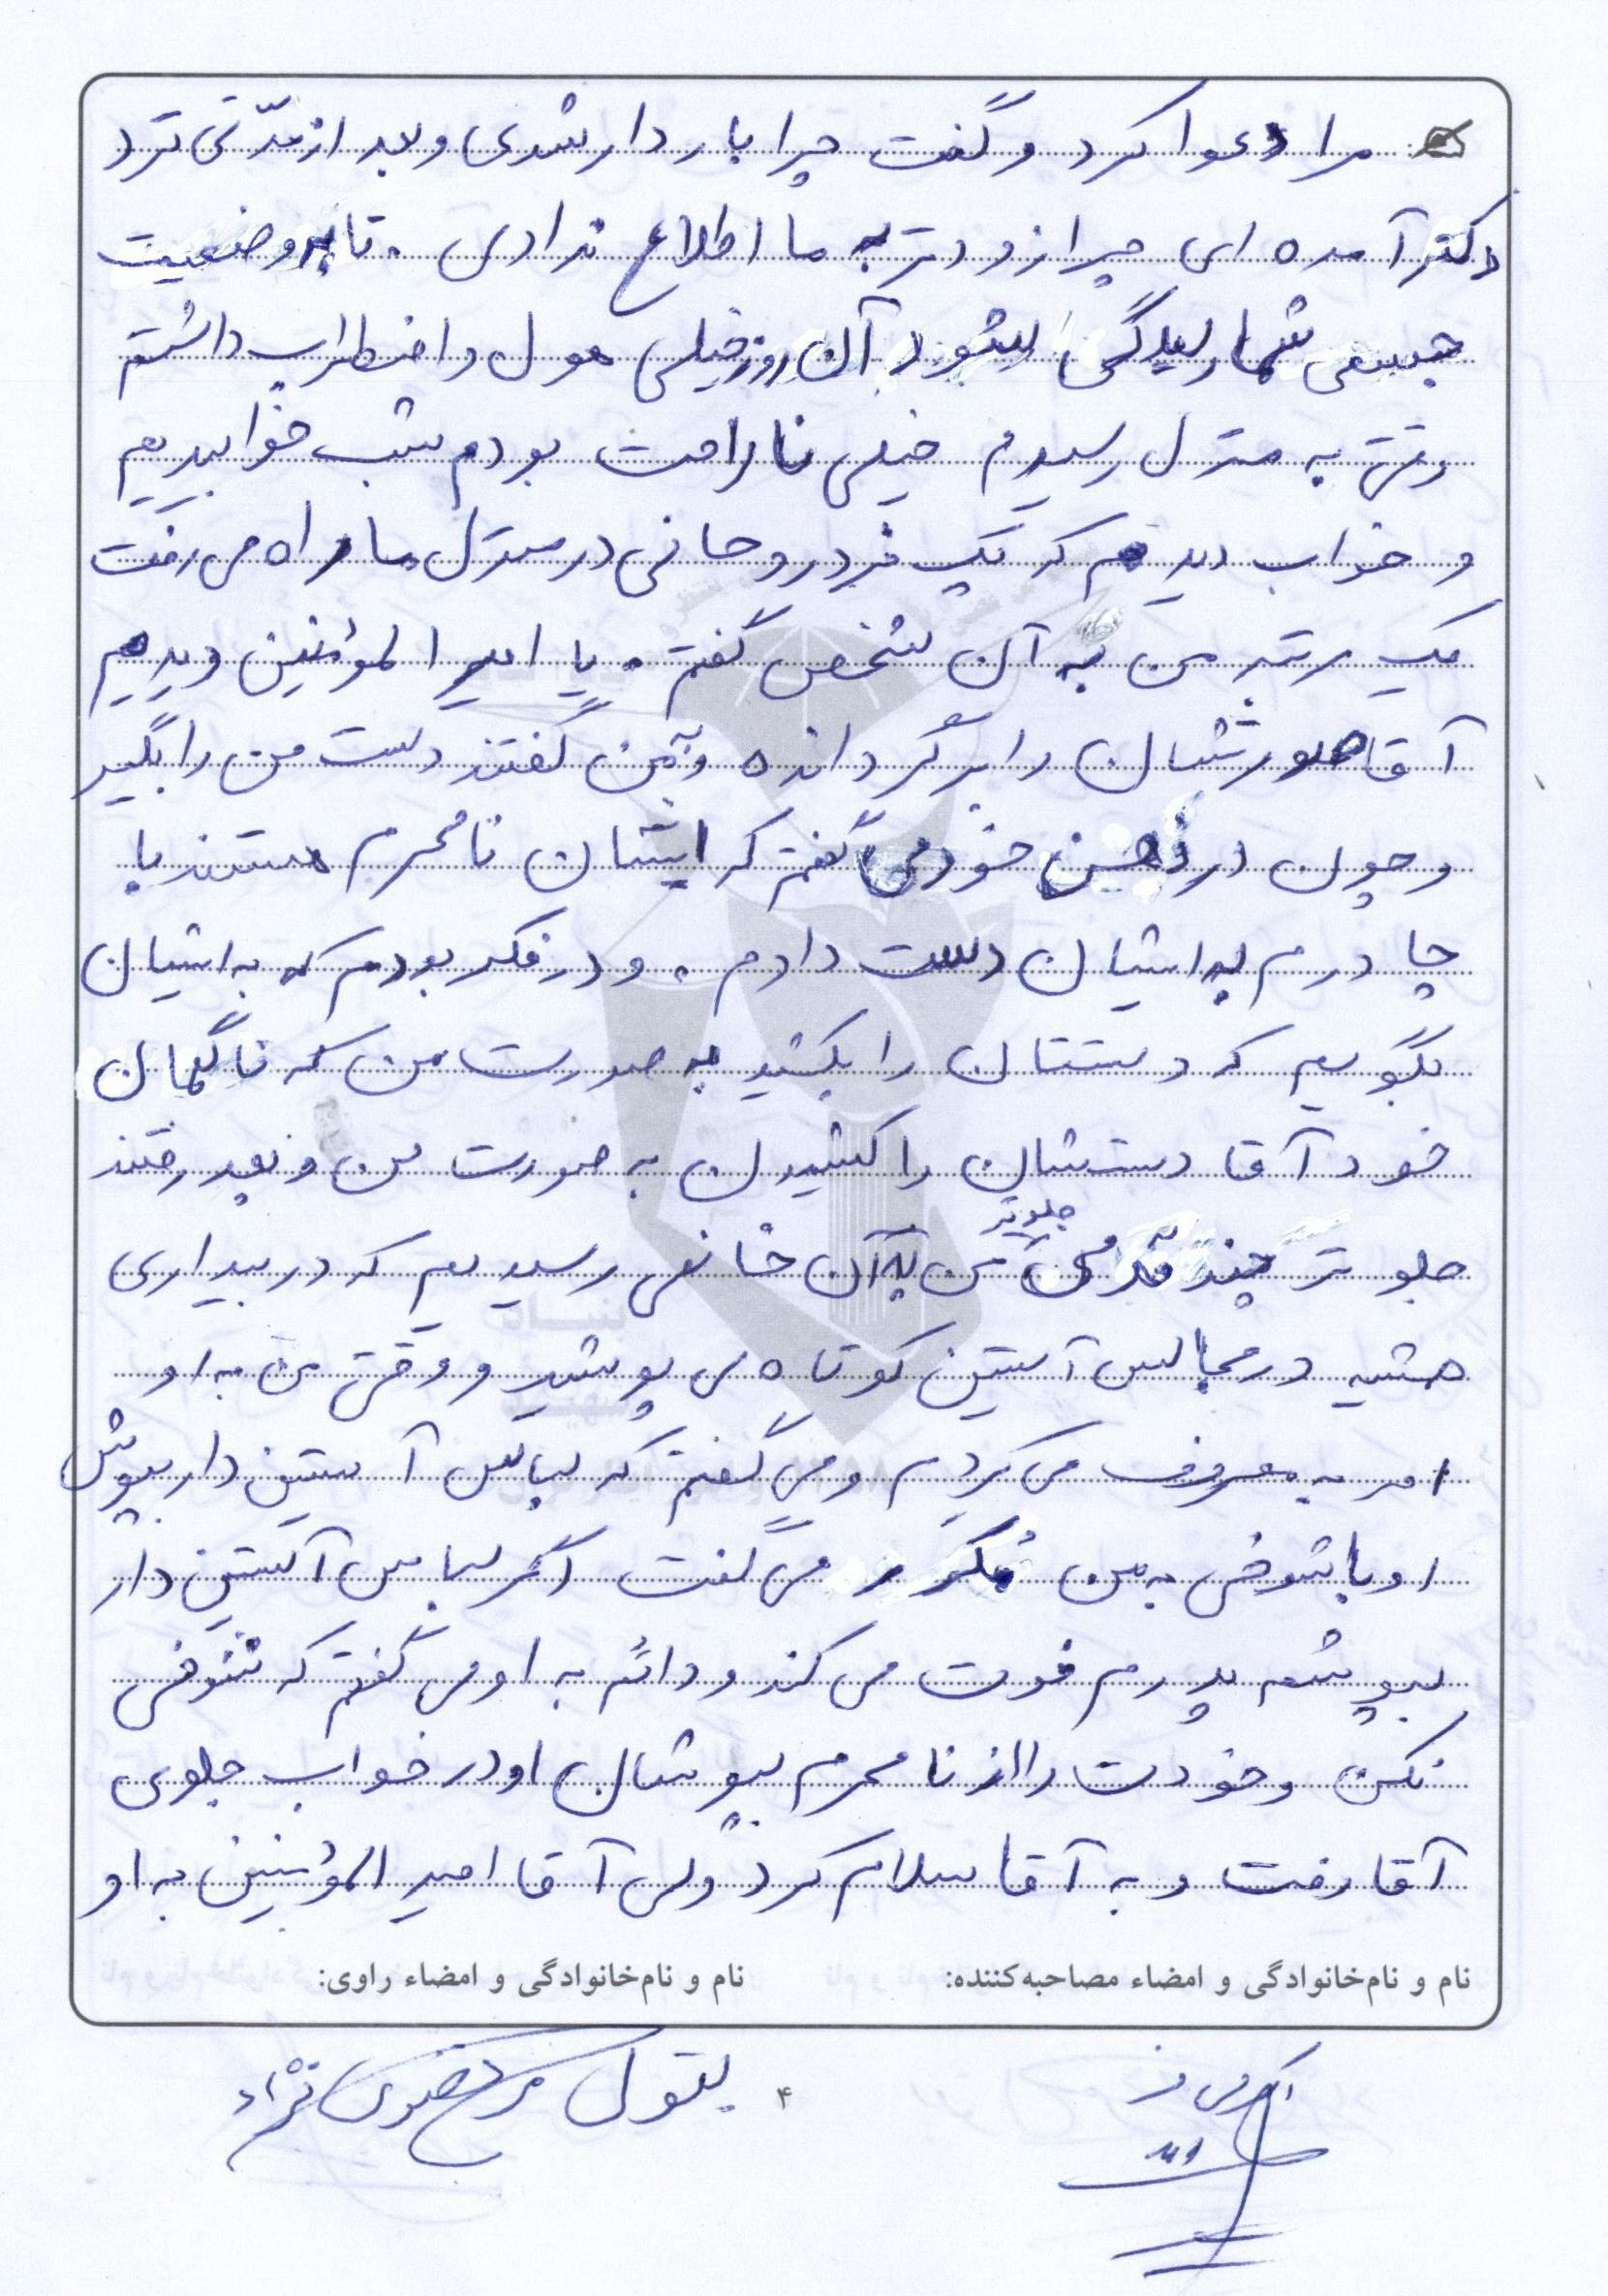 مرا دعوا کرد و گفت چرا باردار شدی و بعد از مدّتی نزد
دکتر آمده ای چرا زودتر به ما اطلاع ندادی . تا به وضعیت
جسمی شما رسیدگی بشود آن روز خیلی هول و اضطراب داشتم
وقتی به منزل رسیدم خیلی ناراحت بودم شب خوابیدیم
و خواب دیدم که یک فرد روحانی در منزل ما راه می رفت
یک مرتبه من به آن شخص گفتم . یا امیر المؤمنین دیدم
آقا صورتشان را برگردانده و به من گفتند دست من را بگیر
و چون در ذهن خود می گفتم که ایشان نامحرم هستند با
چادرم به ایشان دست دادم . و در فکر بودم که به ایشان
بگویم که دستتان را بکشید به صورت من که ناگهان
خود آقا دستشان را کشیدن به صورت من و بعد رفتند
جلوتر چند قدمی جلوتر من به آن خانمی رسیدیم که در بیداری
همشیه در مجالس آستین کوتاه می پوشید و وقتی من به او
امر به معروف می کردم و می گفتم که لباس آستین دار بپوش
او با شوخی به من می گفت اگر لباس آستین دار
بپوشم پدرم فوت می کند و دائم به او می گفتم که شوخی
نکن و خودت را از نامحرم بپوشان او در خواب جلوی
آقا رفت و به آقا سلام کرد ولی آقا امیر المؤمنین به او
نام و نام‌خانوادگی و امضاء مصاحبه‌کننده: نام و نام‌خانوادگی و امضاء راوی:
۴